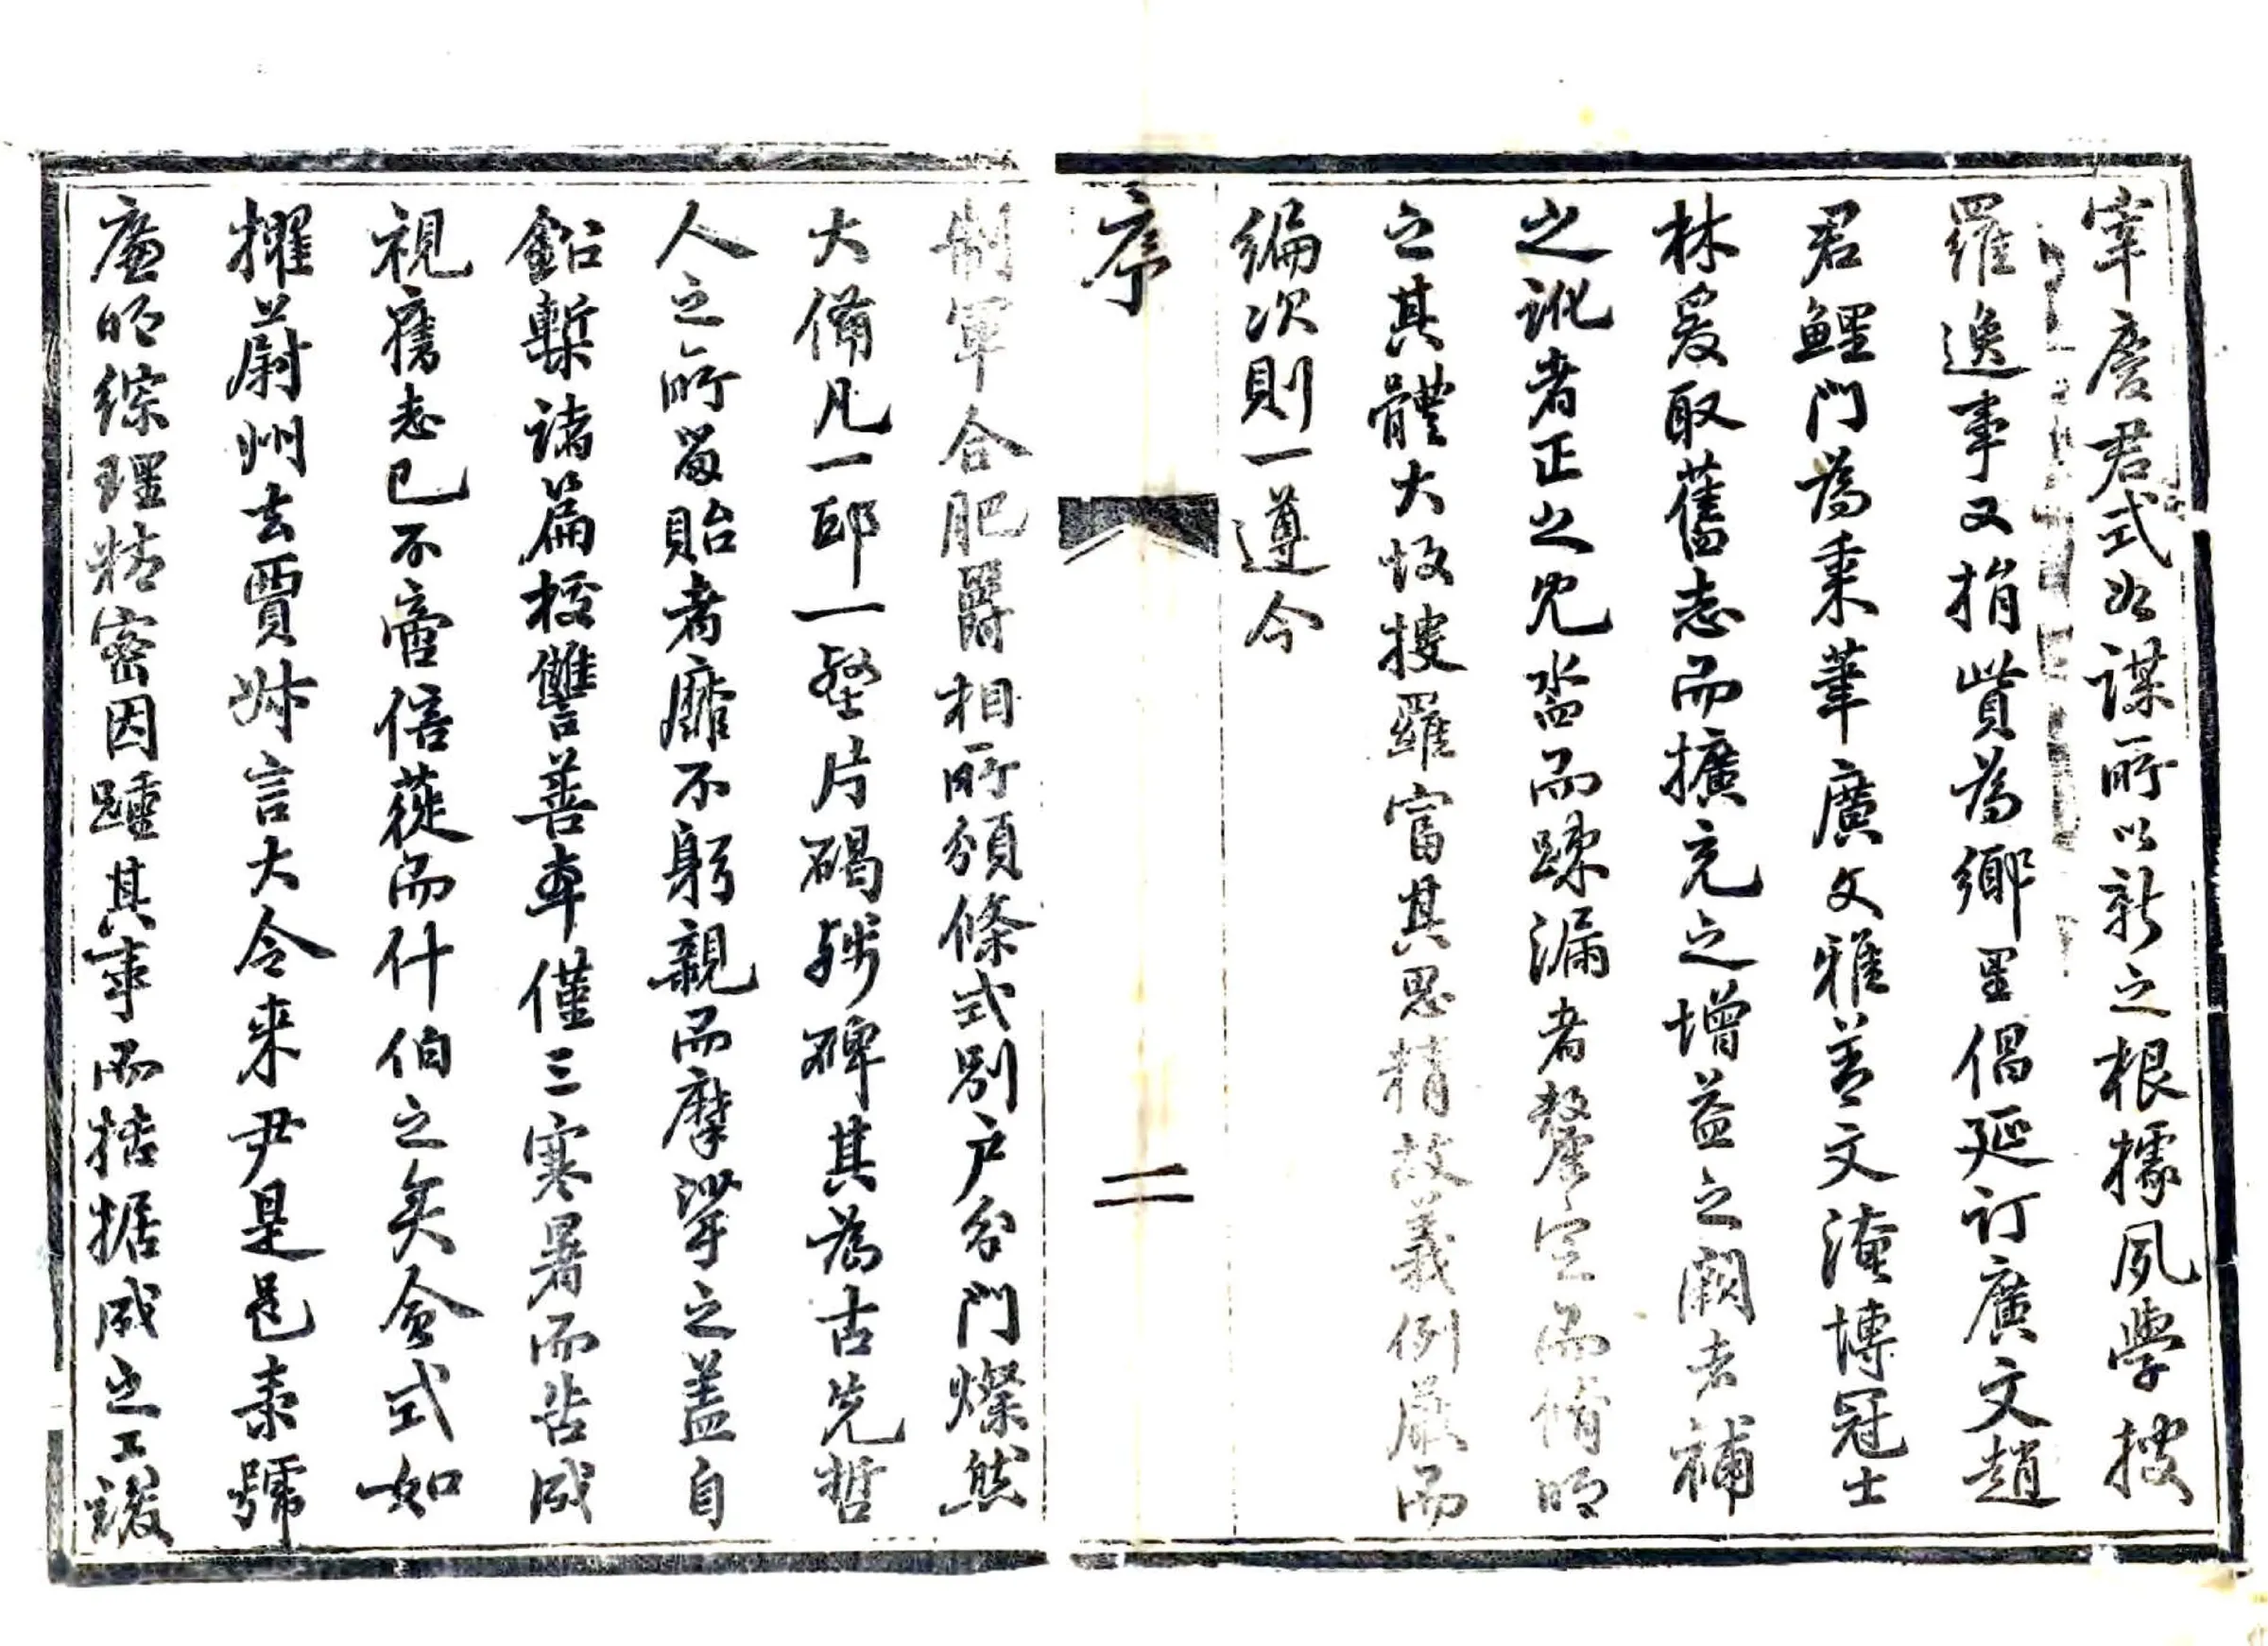 宰慶君式如謀所以新之根據夙學搜
羅逸事又捐貲為鄉里倡延訂廣文趙
君鯉門為秉筆廣文雅善文淹博冠士
林爰取舊志而擴充之增益之闕者補
之訛者正之冗沓而踈漏者釐定而脩明
之其體大故搜羅富其思精故義例嚴而
編次則一遵今
序
二
制軍合肥爵相所頒條式別户分門燦然
大備凡一邱一壑片碣殘碑其為古先哲
人之所留貽者靡不躬親而摩挲之盖自
鉛槧諸篇校讐善本僅三寒暑而告成
視舊志已不啻倍蓰而什伯之矣僉式如
擢蔚州去賈姊言大令来尹是邑素號
廉明綜理精密因踵其事而拮据成之工竣